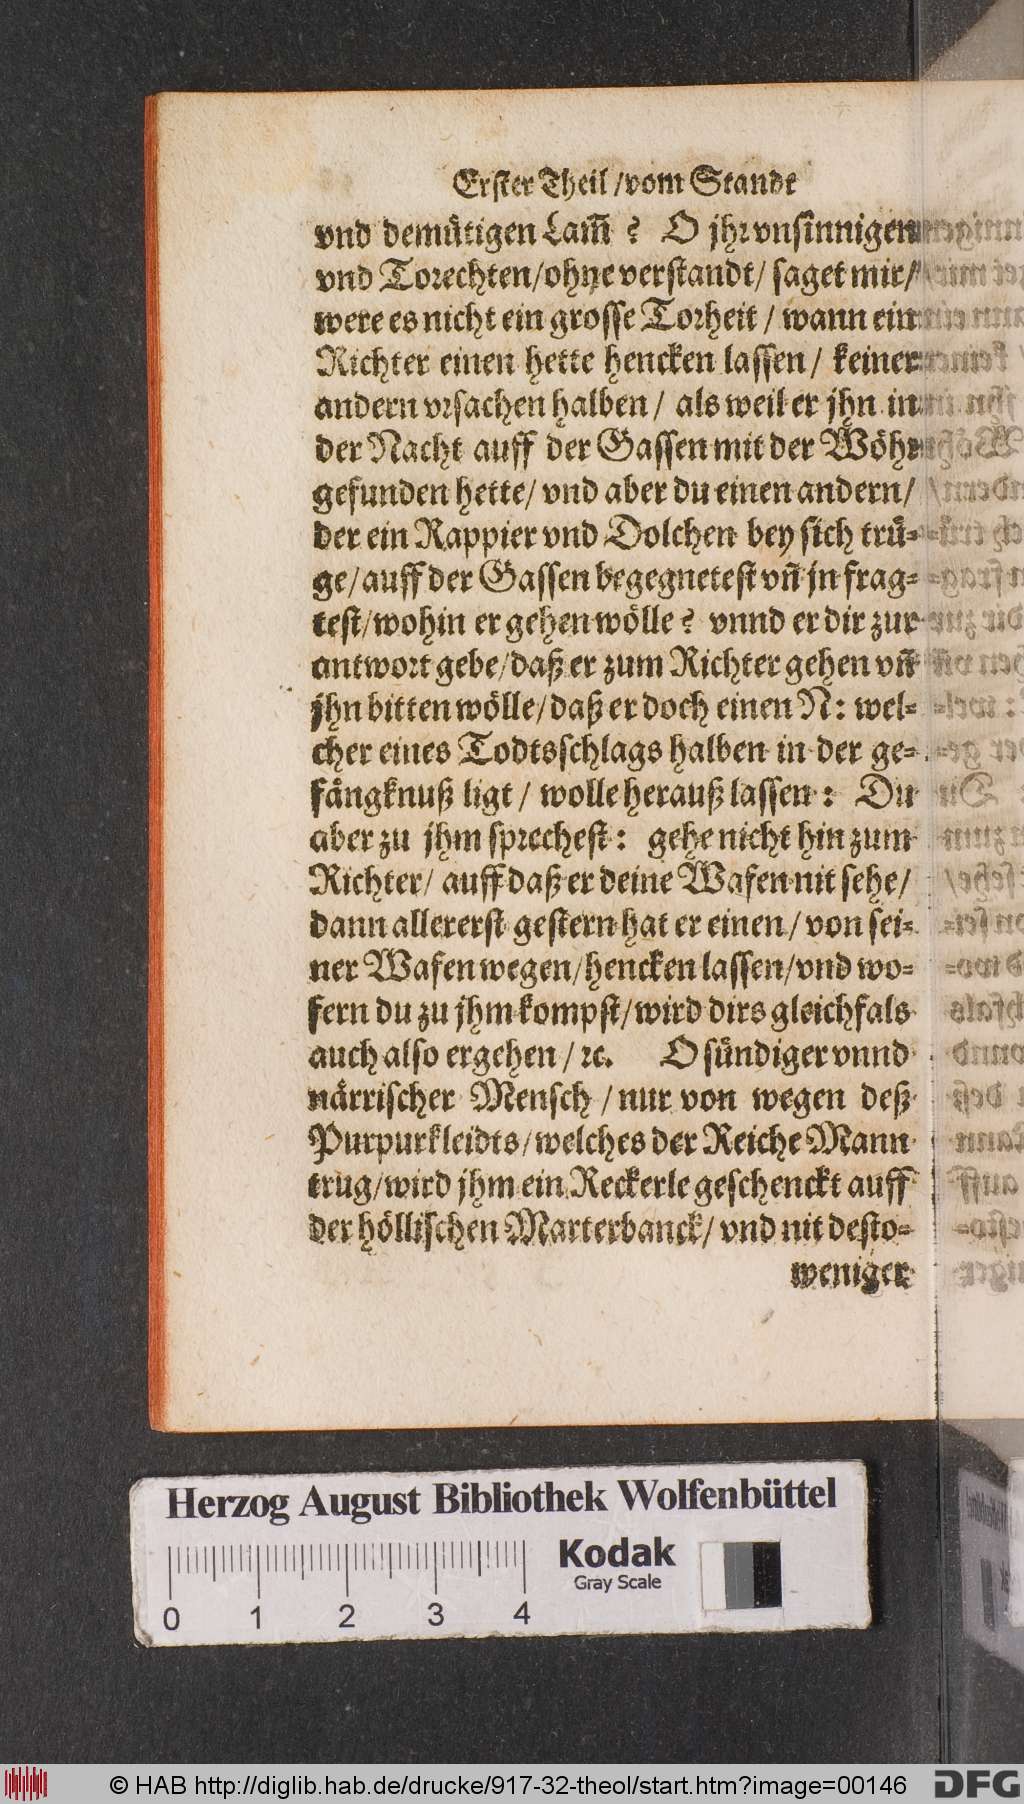 Erster Theil / vom Standt
vnd demütigen Lam̃ ? O jhr vnsinnigen
vnd Torechten / ohne verstandt / saget mir /
were es nicht ein grosse Torheit / wann ein
Richter einen hette hencken lassen / keiner
andern vrsachen halben / als weil er jhn in
der Nacht auff der Gassen mit der Wöhr
gefunden hette / vnd aber du einen andern /
der ein Rappier vnd Dolchen bey sich trü-
ge / auff der Gassen begegnetest vñ jn frag-
test / wohin er gehen wölle ? vnnd er dir zur
antwort gebe / daß er zum Richter gehen vñ
jhn bitten wölle / daß er doch einen N: wel-
cher eines Todtsschlags halben in der ge-
fängknuß ligt / wolle herauß lassen : Du
aber zu jhm sprechest : gehe nicht hin zum
Richter / auff daß er deine Wafen nit sehe /
dann allererst gestern hat er einen / von sei-
ner Wafen wegen / hencken lassen / vnd wo-
fern du zu jhm kompst / wird dirs gleichfals
auch also ergehen / ꝛc. O sündiger vnnd
närrischer Mensch / nur von wegen deß
Purpurkleidts / welches der Reiche Mann
trug / wird jhm ein Reckerle geschenckt auff
der höllischen Marterbanck / vnd nit desto-
weniger
Herzog August Bibliothek Wolfenbüttel
Kodak
Gray Scale
0 1 2 3 4
© HAB http://diglib.hab.de/drucke/917-32-theol/start.htm?image=00146
DFG